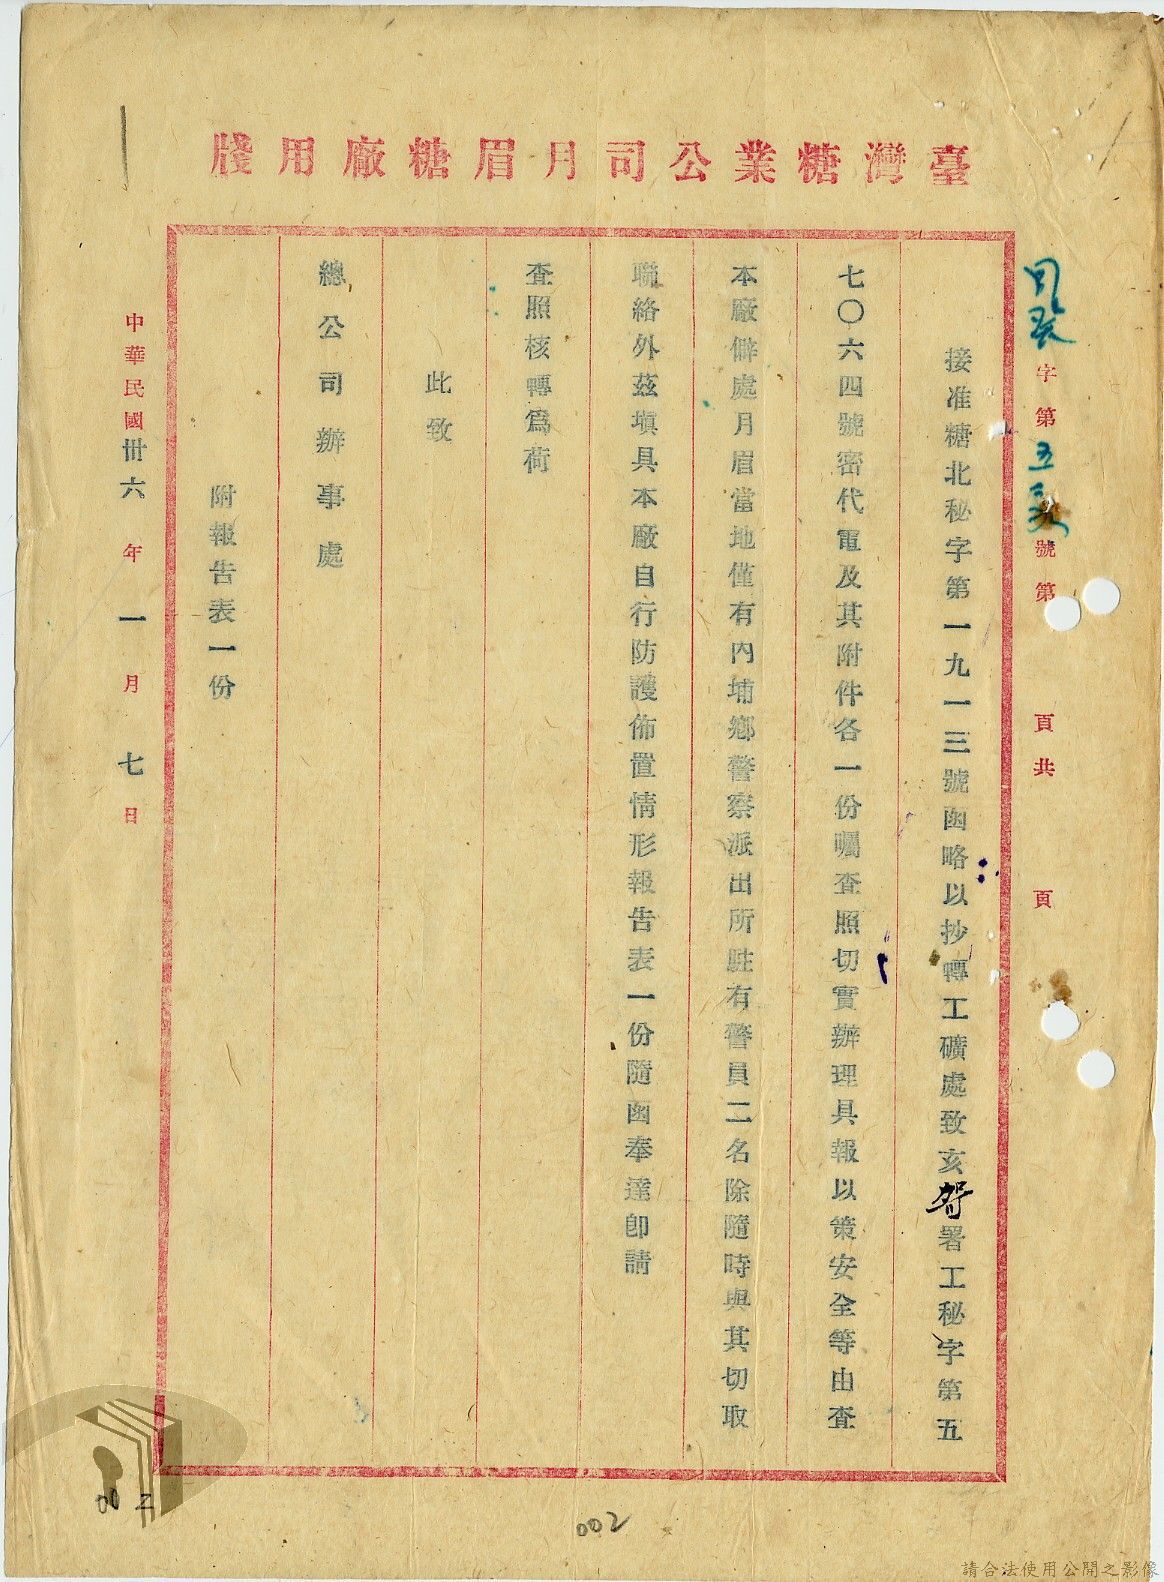 臺灣糖業公司月眉糖廠用牋
字第五號第 頁共 頁
接准糖北秘字第一九一三號函略以抄轉工礦處致亥署工秘字第五
七〇六四號密代電及其附件各一份囑查照切實辦理具報以策安全等由查
本廠僻處月眉當地僅有內埔鄉警察派出所駐有警員二名除隨時與其切取
聯絡外茲填具本廠自行防護佈置情形報告表一份隨函奉達卽請
查照核轉爲荷
此致
總公司辦事處
附報告表一份
中華民國卅六年一月七日
002
002
請合法使用公開之影像